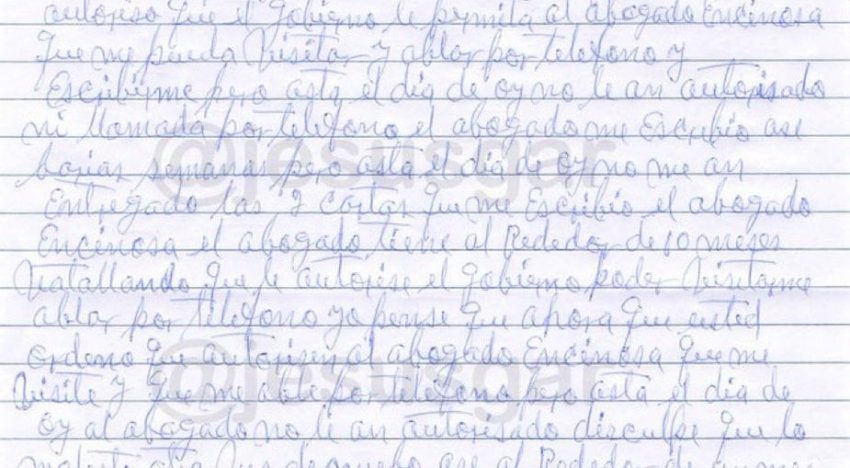 autoriso que el gobierno le permita al abogado Encinosa
que me pueda visitar y ablar por telefono y
Escribirme pero asta el dia de oy no le an autorisado
ni llamada por telefono el abogado me Escribio ase
barias semanas pero asta el dia de oy no me an
Entregado las 2 cartas que me Escribio el abogado
Encinosa el abogado tiene al Rededor de 10 meses
vatallando que le autorise el gobierno poder visitarme
ablar por telefono yo pense que ahora que usted
ordeno que autorisen al abogado Encinosa que me
visite y que me able por telefono pero asta el dia de
oy al abogado no le an autorisado disculpe que lo
@jesusgar
@jesusgar